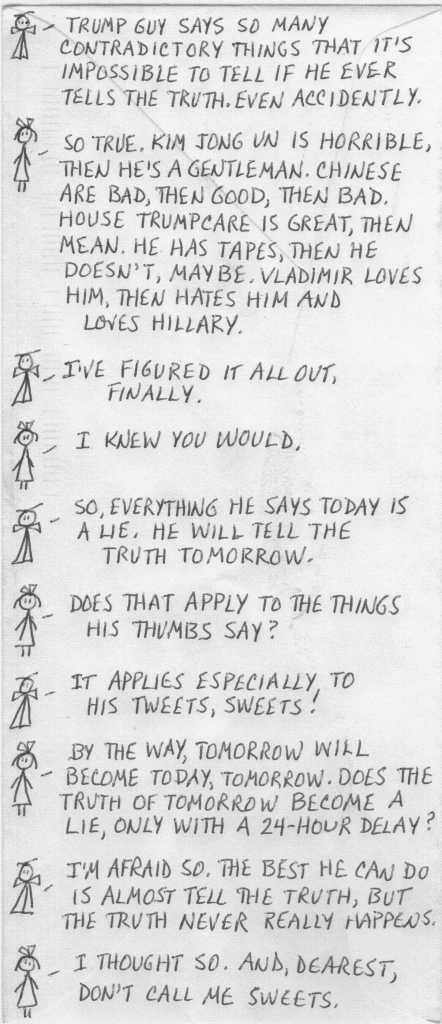 TRUMP GUY SAYS SO MANY
CONTRADICTORY THINGS THAT IT'S
IMPOSSIBLE TO TELL IF HE EVER
TELLS THE TRUTH. EVEN ACCIDENTLY.
SO TRUE. KIM JONG UN IS HORRIBLE,
THEN HE'S A GENTLEMAN. CHINESE
ARE BAD, THEN GOOD, THEN BAD.
HOUSE TRUMPCARE IS GREAT, THEN
MEAN. HE HAS TAPES, THEN HE
DOESN'T, MAYBE. VLADIMIR LOVES
HIM, THEN HATES HIM AND
LOVES HILLARY.
I'VE FIGURED IT ALL OUT,
FINALLY.
I KNEW YOU WOULD.
SO, EVERYTHING HE SAYS TODAY IS
A LIE. HE WILL TELL THE
TRUTH TOMORROW.
DOES THAT APPLY TO THE THINGS
HIS THUMBS SAY?
IT APPLIES ESPECIALLY, TO
HIS TWEETS, SWEETS!
BY THE WAY, TOMORROW WILL
BECOME TODAY, TOMORROW. DOES THE
TRUTH OF TOMORROW BECOME A
LIE, ONLY WITH A 24-HOUR DELAY?
I'M AFRAID SO. THE BEST HE CAN DO
IS ALMOST TELL THE TRUTH, BUT
THE TRUTH NEVER REALLY HAPPENS.
I THOUGHT SO. AND, DEAREST,
DON'T CALL ME SWEETS.